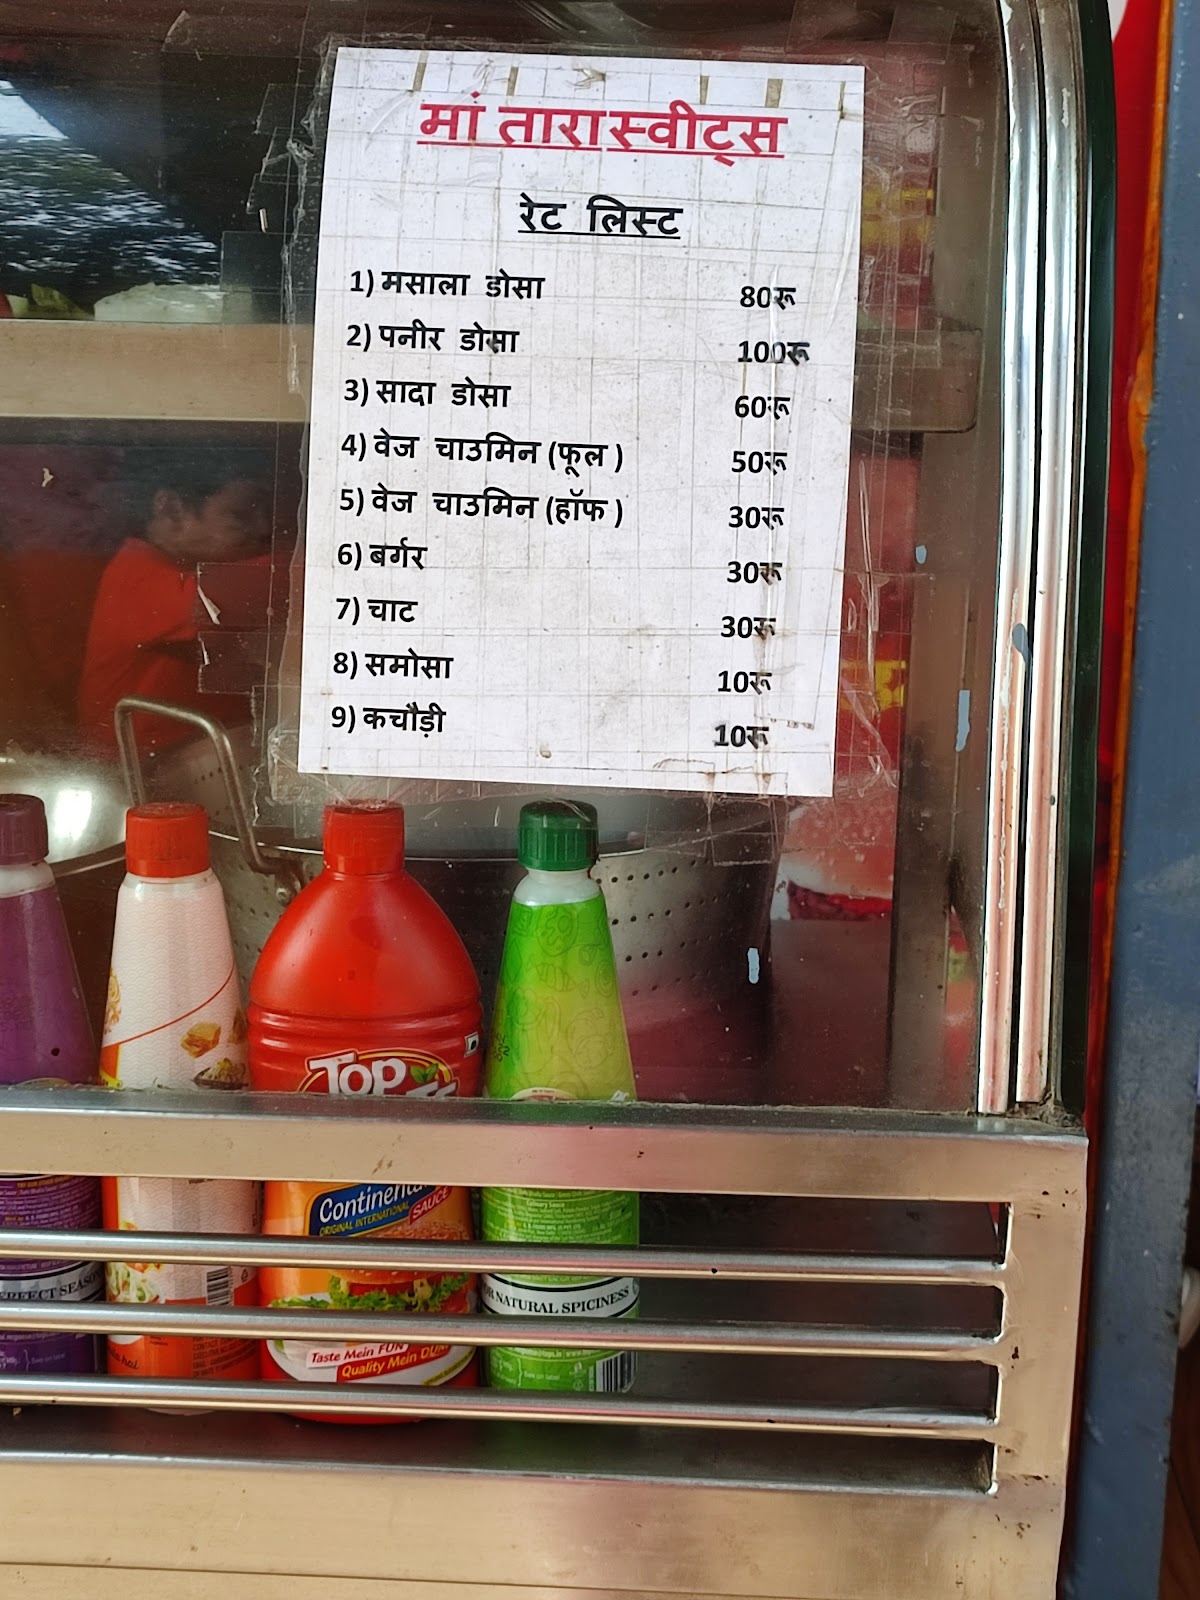 मां तारा स्वीट्स
रेट लिस्ट
1) मसाला डोसा 80रू
2) पनीर डोसा 100रू
3) सादा डोसा 60रू
4) वेज चाउमिन (फूल ) 50रू
5) वेज चाउमिन (हॉफ ) 30रू
6) बर्गर 30रू
7) चाट 30रू
8) समोसा 10रू
9) कचौड़ी 10रू
TOP
Continental
ORIGINAL INTERNATIONAL
SAUCE
Taste Mein FUN
Quality Mein DUM
NATURAL SPICINESS